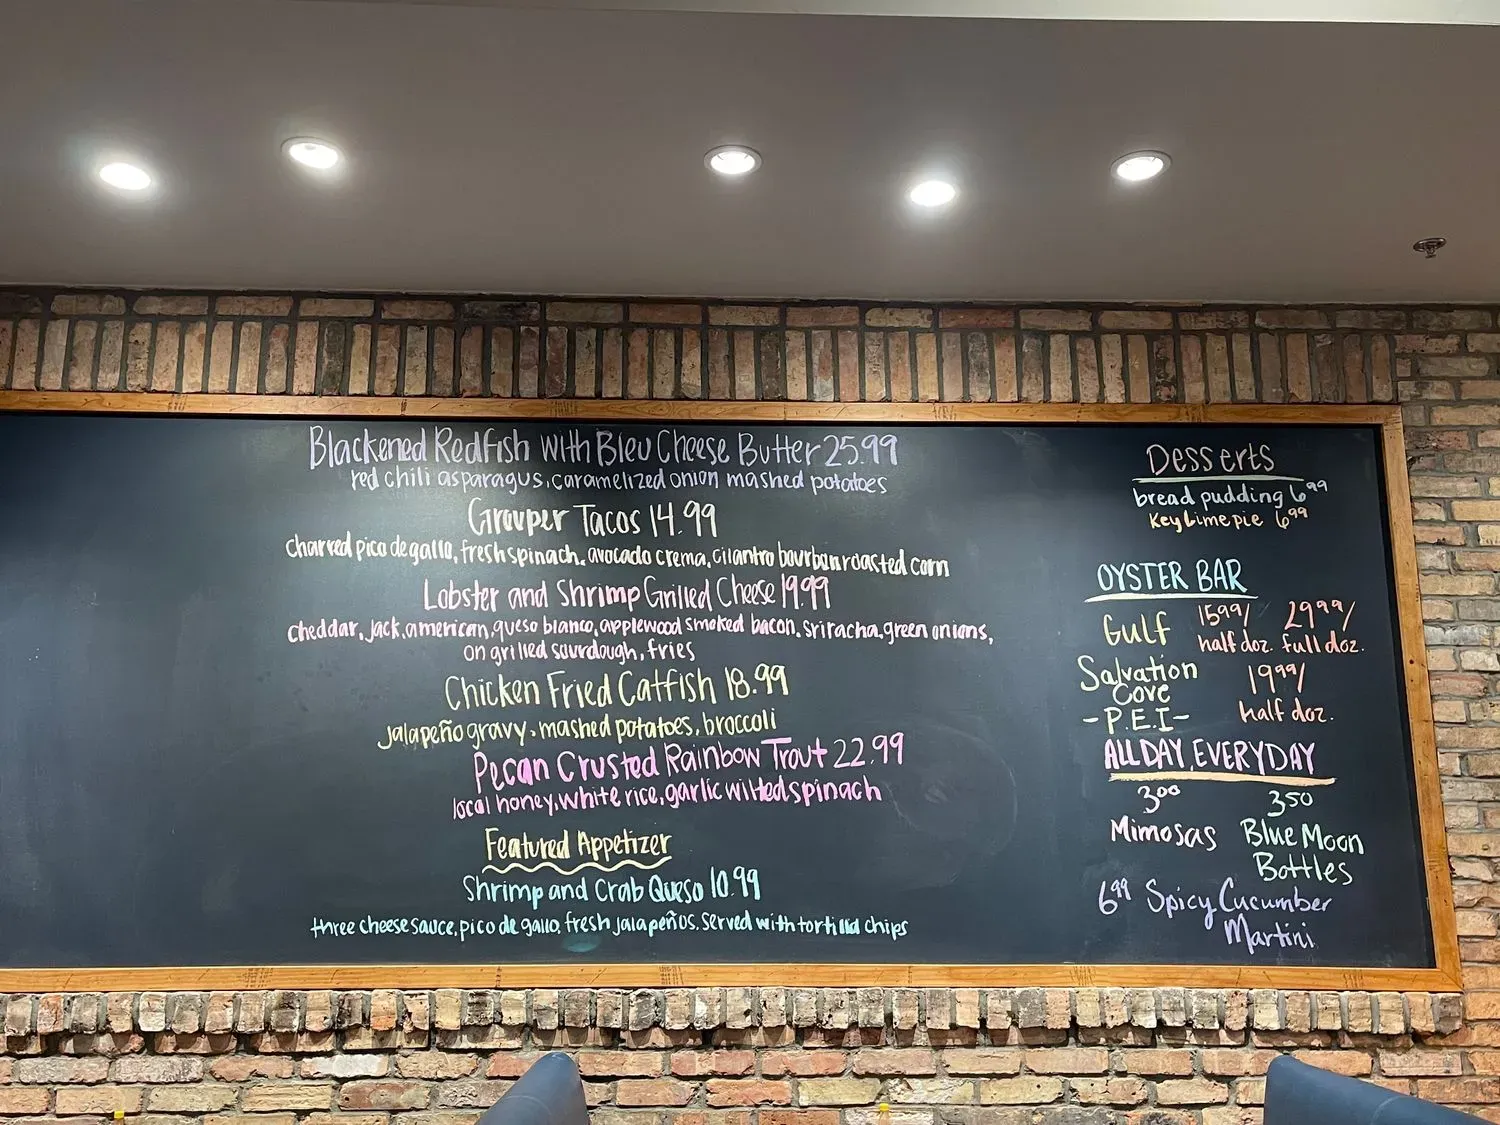 Blackened Redfish with Bleu Cheese Butter 25.99
red chili asparagus, caramelized onion mashed potatoes
Grouper Tacos 14.99
charred pico de gallo, fresh spinach, avocado crema, cilantro bourbon roasted corn
Lobster and Shrimp Grilled Cheese 19.99
cheddar, jack, american, queso blanco, applewood smoked bacon, sriracha, green onions,
on grilled sourdough, fries
Chicken Fried Catfish 18.99
jalapeño gravy, mashed potatoes, broccoli
Pecan Crusted Rainbow Trout 22.99
local honey, white rice, garlic wilted spinach
Featured Appetizer
Shrimp and Crab Queso 10.99
three cheese sauce, pico de gallo, fresh jalapeños. served with tortilla chips
Desserts
bread pudding 6.99
Key Lime pie 6.99
OYSTER BAR
Gulf 15.99/ half doz. 29.99/ full doz.
Salvation
Cove
- P.E.I -
19.99/
half doz.
ALL DAY, EVERYDAY
3.00 Mimosas
3.50 Blue Moon
Bottles
6.99 Spicy Cucumber
Martini